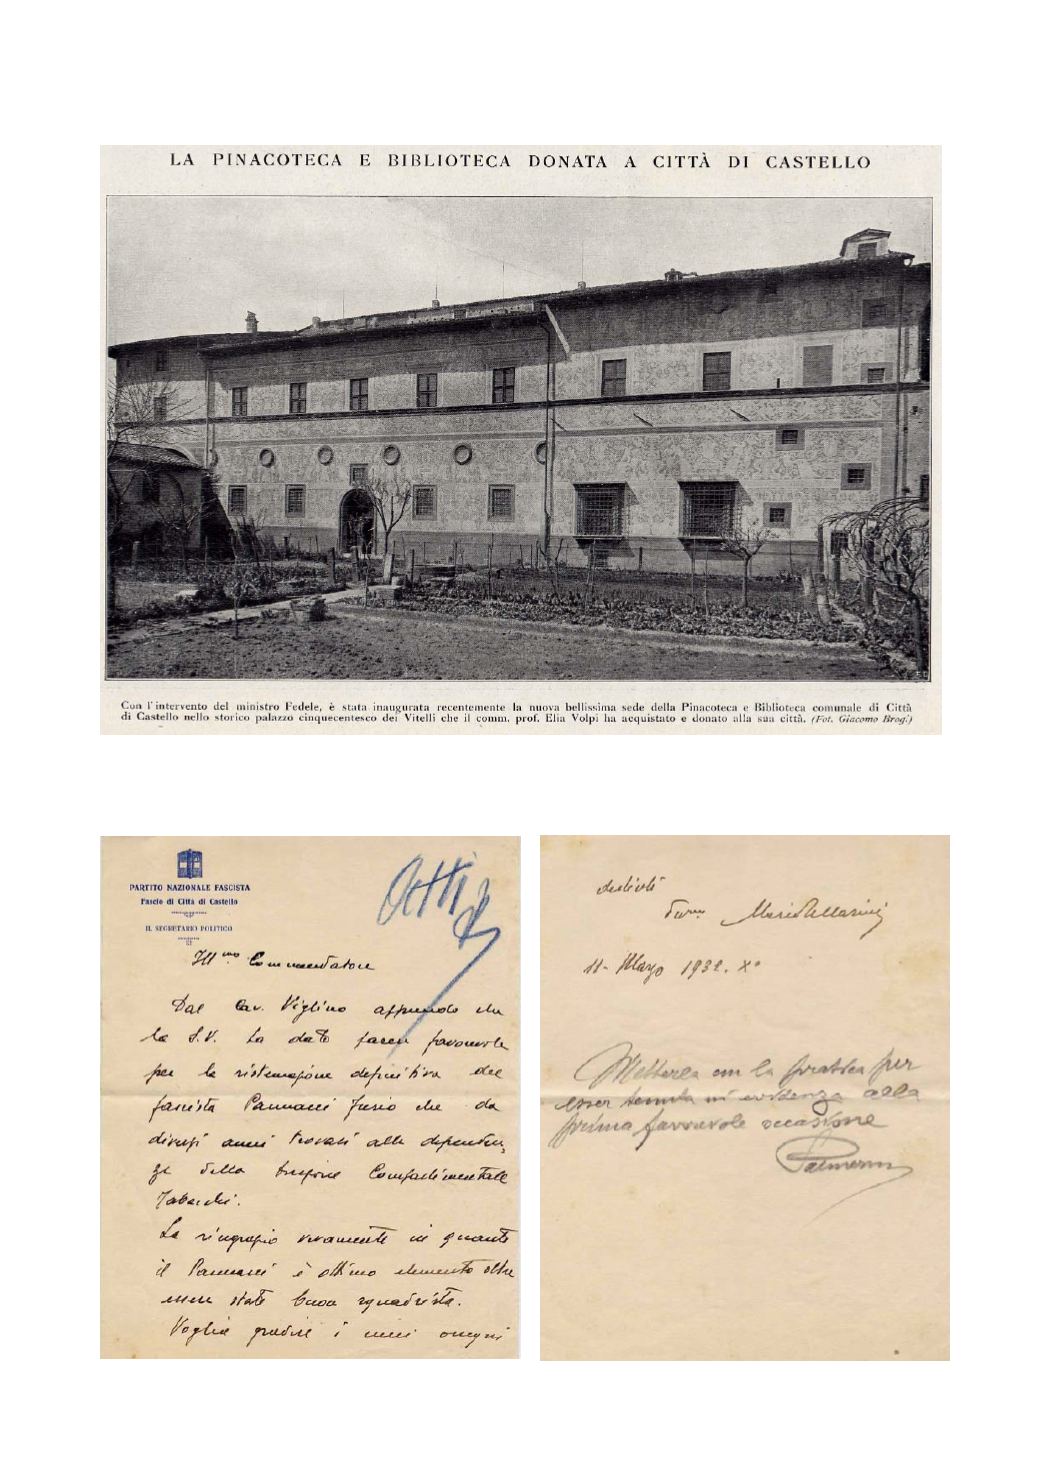 LA PINACOTECA E BIBLIOTECA DONATA A CITTÀ DI CASTELLO
Con l'intervento del ministro Fedele, è stata inaugurata recentemente la nuova bellissima sede della Pinacoteca e Biblioteca comunale di Città
di Castello nello storico palazzo cinquecentesco dei Vitelli che il comm. prof. Elia Volpi ha acquistato e donato alla sua città. (Fot. Giacomo Brogi)
PARTITO NAZIONALE FASCISTA
Fascio di Città di Castello
IL SEGRETARIO POLITICO
Ill mo Commendatore
Dal Cav. Viglino apprendo che
la S.V. ha dato parere favorevole
per la sistemazione definitiva del
fascista Pannacci che da
diversi anni trovasi alle dipenden
ze della Compartimentale
Tabacchi.
La ringrazio vivamente in quanto
il Pannacci è ottimo elemento oltre
essere stato buon squadrista.
Voglia gradire i miei omaggi
devoti
11- Marzo 1932. X°
Metterla con la pratica per
esser tenuta in evidenza alla
prima favorevole occasione
Palmerini